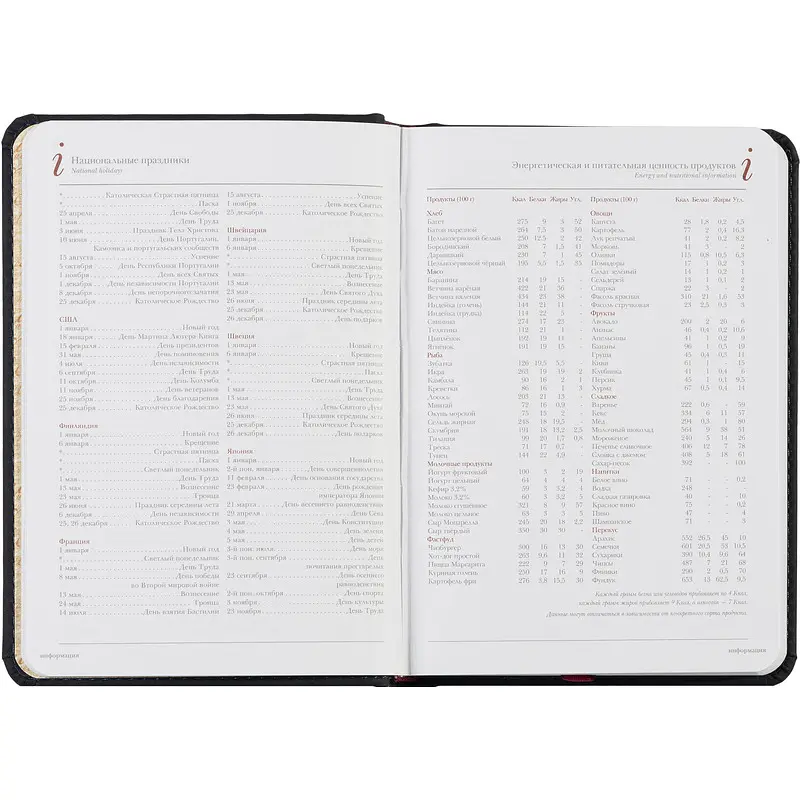 i
Национальные праздники
National holidays
* Католическая Страстная пятница
* Пасха
25 апреля День Свободы
1 мая День Труда
3 июня Праздник Тела Христова
10 июня День Португалии,
Камоэнса и португальских сообществ
15 августа Успение
5 октября День Республики Португалии
1 ноября День всех Святых
1 декабря День независимости Португалии
8 декабря День непорочного зачатия
25 декабря Католическое Рождество
США
1 января Новый год
18 января День Мартина Лютера Кинга
15 февраля День президентов
31 мая День поминовения
4 июля День независимости
6 сентября День Труда
11 октября День Колумба
11 ноября День ветеранов
25 ноября День благодарения
25 декабря Католическое Рождество
Финляндия
1 января Новый год
6 января Крещение
* Страстная пятница
* Пасха
* Светлый понедельник
1 мая День Труда
13 мая Вознесение
23 мая Троица
26 июня Праздник середины лета
6 декабря День независимости
25, 26 декабря Католическое Рождество
Франция
1 января Новый год
* Светлый понедельник
1 мая День Труда
8 мая День победы
во Второй мировой войне
13 мая Вознесение
24 мая Троица
14 июля День взятия Бастилии
15 августа Успение
1 ноября День всех Святых
25 декабря Католическое Рождество
Швейцария
1 января Новый год
6 января Крещение
* Страстная пятница
* Светлый понедельник
1 мая День Труда
13 мая Вознесение
23 мая День Святого Духа
26 июня Праздник середины лета
25 декабря Католическое Рождество
26 декабря День подарков
Швеция
1 января Новый год
6 января Крещение
* Страстная пятница
* Пасха
* Светлый понедельник
1 мая День Труда
13 мая Вознесение
23 мая День Святого Духа
26 июня Праздник середины лета
25 декабря Католическое Рождество
26 декабря День подарков
Япония
1 января Новый год
2-й пон. января День совершеннолетия
11 февраля День основания государства
23 февраля День рождения
императора Японии
21 марта День весеннего равноденствия
29 апреля День Сёва
3 мая День Конституции
4 мая День зелени
5 мая День детей
3-й пон. июля День моря
3-й пон. сентября День
почитания престарелых
23 сентября День осеннего
равноденствия
2-й пон. октября День спорта
3 ноября День культуры
23 ноября День Труда
информация
Энергетическая и питательная ценность продуктов
Energy and nutritional information
i
Продукты (100 г) Ккал Белки Жиры Угл.
Хлеб
Багет 275 9 3 52
Батон нарезной 264 7,5 3 50
Цельнозерновой белый 250 12,5 2 42
Бородинский 208 7 1,5 41
Дарницкий 230 7 1 45
Цельнозерновой чёрный 195 5,5 1,5 35
Мясо
Баранина 214 19 15 -
Ветчина варёная 422 21 36 -
Ветчина вяленая 434 23 38 -
Индейка (голень) 144 21 11 -
Индейка (грудка) 114 22 5 -
Свинина 274 17 23 -
Телятина 112 21 1 -
Цыплёнок 192 19 11 -
Ягнёнок 191 19 15 -
Рыба
Зубатка 126 19,5 5,5 -
Икра 263 19 19 2
Камбала 90 16 2 1
Креветка 86 16 1 3
Лосось 203 21 13 -
Минтай 72 16 0,9 -
Окунь морской 75 15 2 -
Сельдь жирная 248 18 19,5 -
Скумбрия 191 18 13,2 2,5
Тилапия 99 20 1,7 0,8
Треска 71 17 0,7 -
Тунец 144 22 4,9 -
Молочные продукты
Йогурт фруктовый 100 3 2 19
Йогурт цельный 64 4 4 4
Кефир 3,2% 59 3 3,2 4
Молоко 3,2% 60 3 3,2 5
Молоко сгущённое 321 8 9 57
Молоко цельное 63 3 3 5
Сыр Моцарелла 245 20 18 2,2
Сыр твёрдый 350 30 30 -
Фастфуд
Чизбургер 300 16 13 30
Хот-дог простой 263 9,6 11 32
Пицца Маргарита 222 9 7 29
Куриная голень 250 17 16 9
Картофель фри 276 3,8 15,5 30
Продукты (100 г) Ккал Белки Жиры Угл.
Овощи
Капуста 28 1,8 0,2 4,5
Картофель 77 2 0,4 16,3
Лук репчатый 41 2 0,2 8,2
Морковь 41 3 - 2
Оливки 115 0,8 10,5 6,3
Помидоры 17 1 0,2 3
Салат зелёный 14 1 0,2 1
Сельдерей 13 1 0,1 2
Спаржа 22 3 - 2
Фасоль красная 310 21 1,6 53
Фасоль стручковая 23 2,5 0,3 3
Фрукты
Авокадо 209 2 20 6
Ананас 46 0,4 0,2 10,6
Апельсины 41 1 0,2 9
Бананы 96 1 0,5 19
Груша 45 0,4 0,3 11
Киви 61 - - 15
Клубника 41 1 0,4 6
Персик 45 1 0,1 9,5
Хурма 67 0,5 0,4 14
Сладкое
Варенье 222 0,6 - 59
Кекс 334 6 11 57
Мёд 294 0,3 1 80
Молочный шоколад 564 9 38 51
Мороженое 240 5 14 26
Печенье сливочное 406 12 7 78
Слойка с джемом 408 5 18 61
Сахар-песок 392 - - 100
Напитки
Белое вино 71 - - 0,2
Водка 248 - - -
Сладкая газировка 40 - - 10
Красное вино 75 - - 0,2
Пиво 47 - - 4
Шампанское 71 - - 3
Перекус
Арахис 552 26,5 45 10
Семечки 601 20,5 53 10,5
Сухарики 390 10,4 9,6 64
Чипсы 487 7 21 68
Финики 290 2 0,5 70
Фундук 653 13 62,5 9,5
Каждый грамм белка или углевода прибавляет по 4 Ккал,
каждый грамм жира прибавляет 9 Ккал, а алкоголя — 7 Ккал.
Данные могут отличаться в зависимости от конкретного сорта продукта.
информация